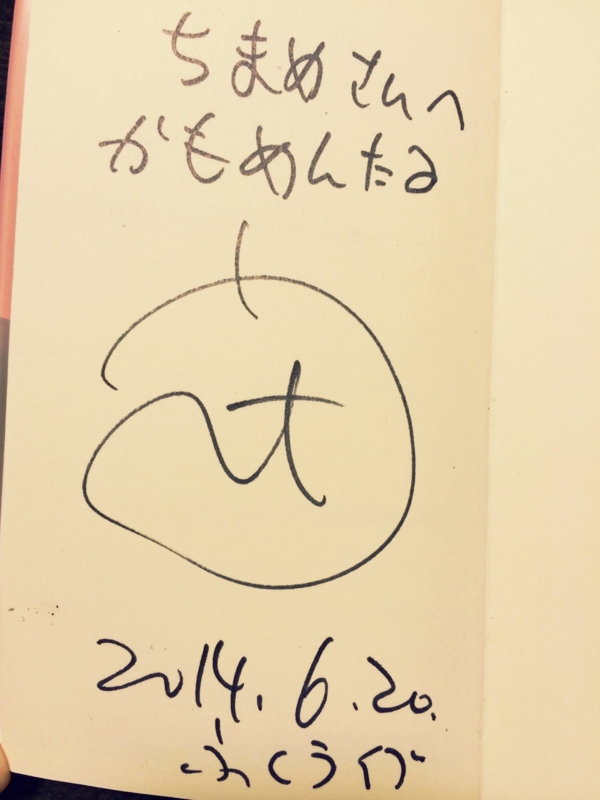 ちまめさんへ
かもめんたる
2014.6.20.